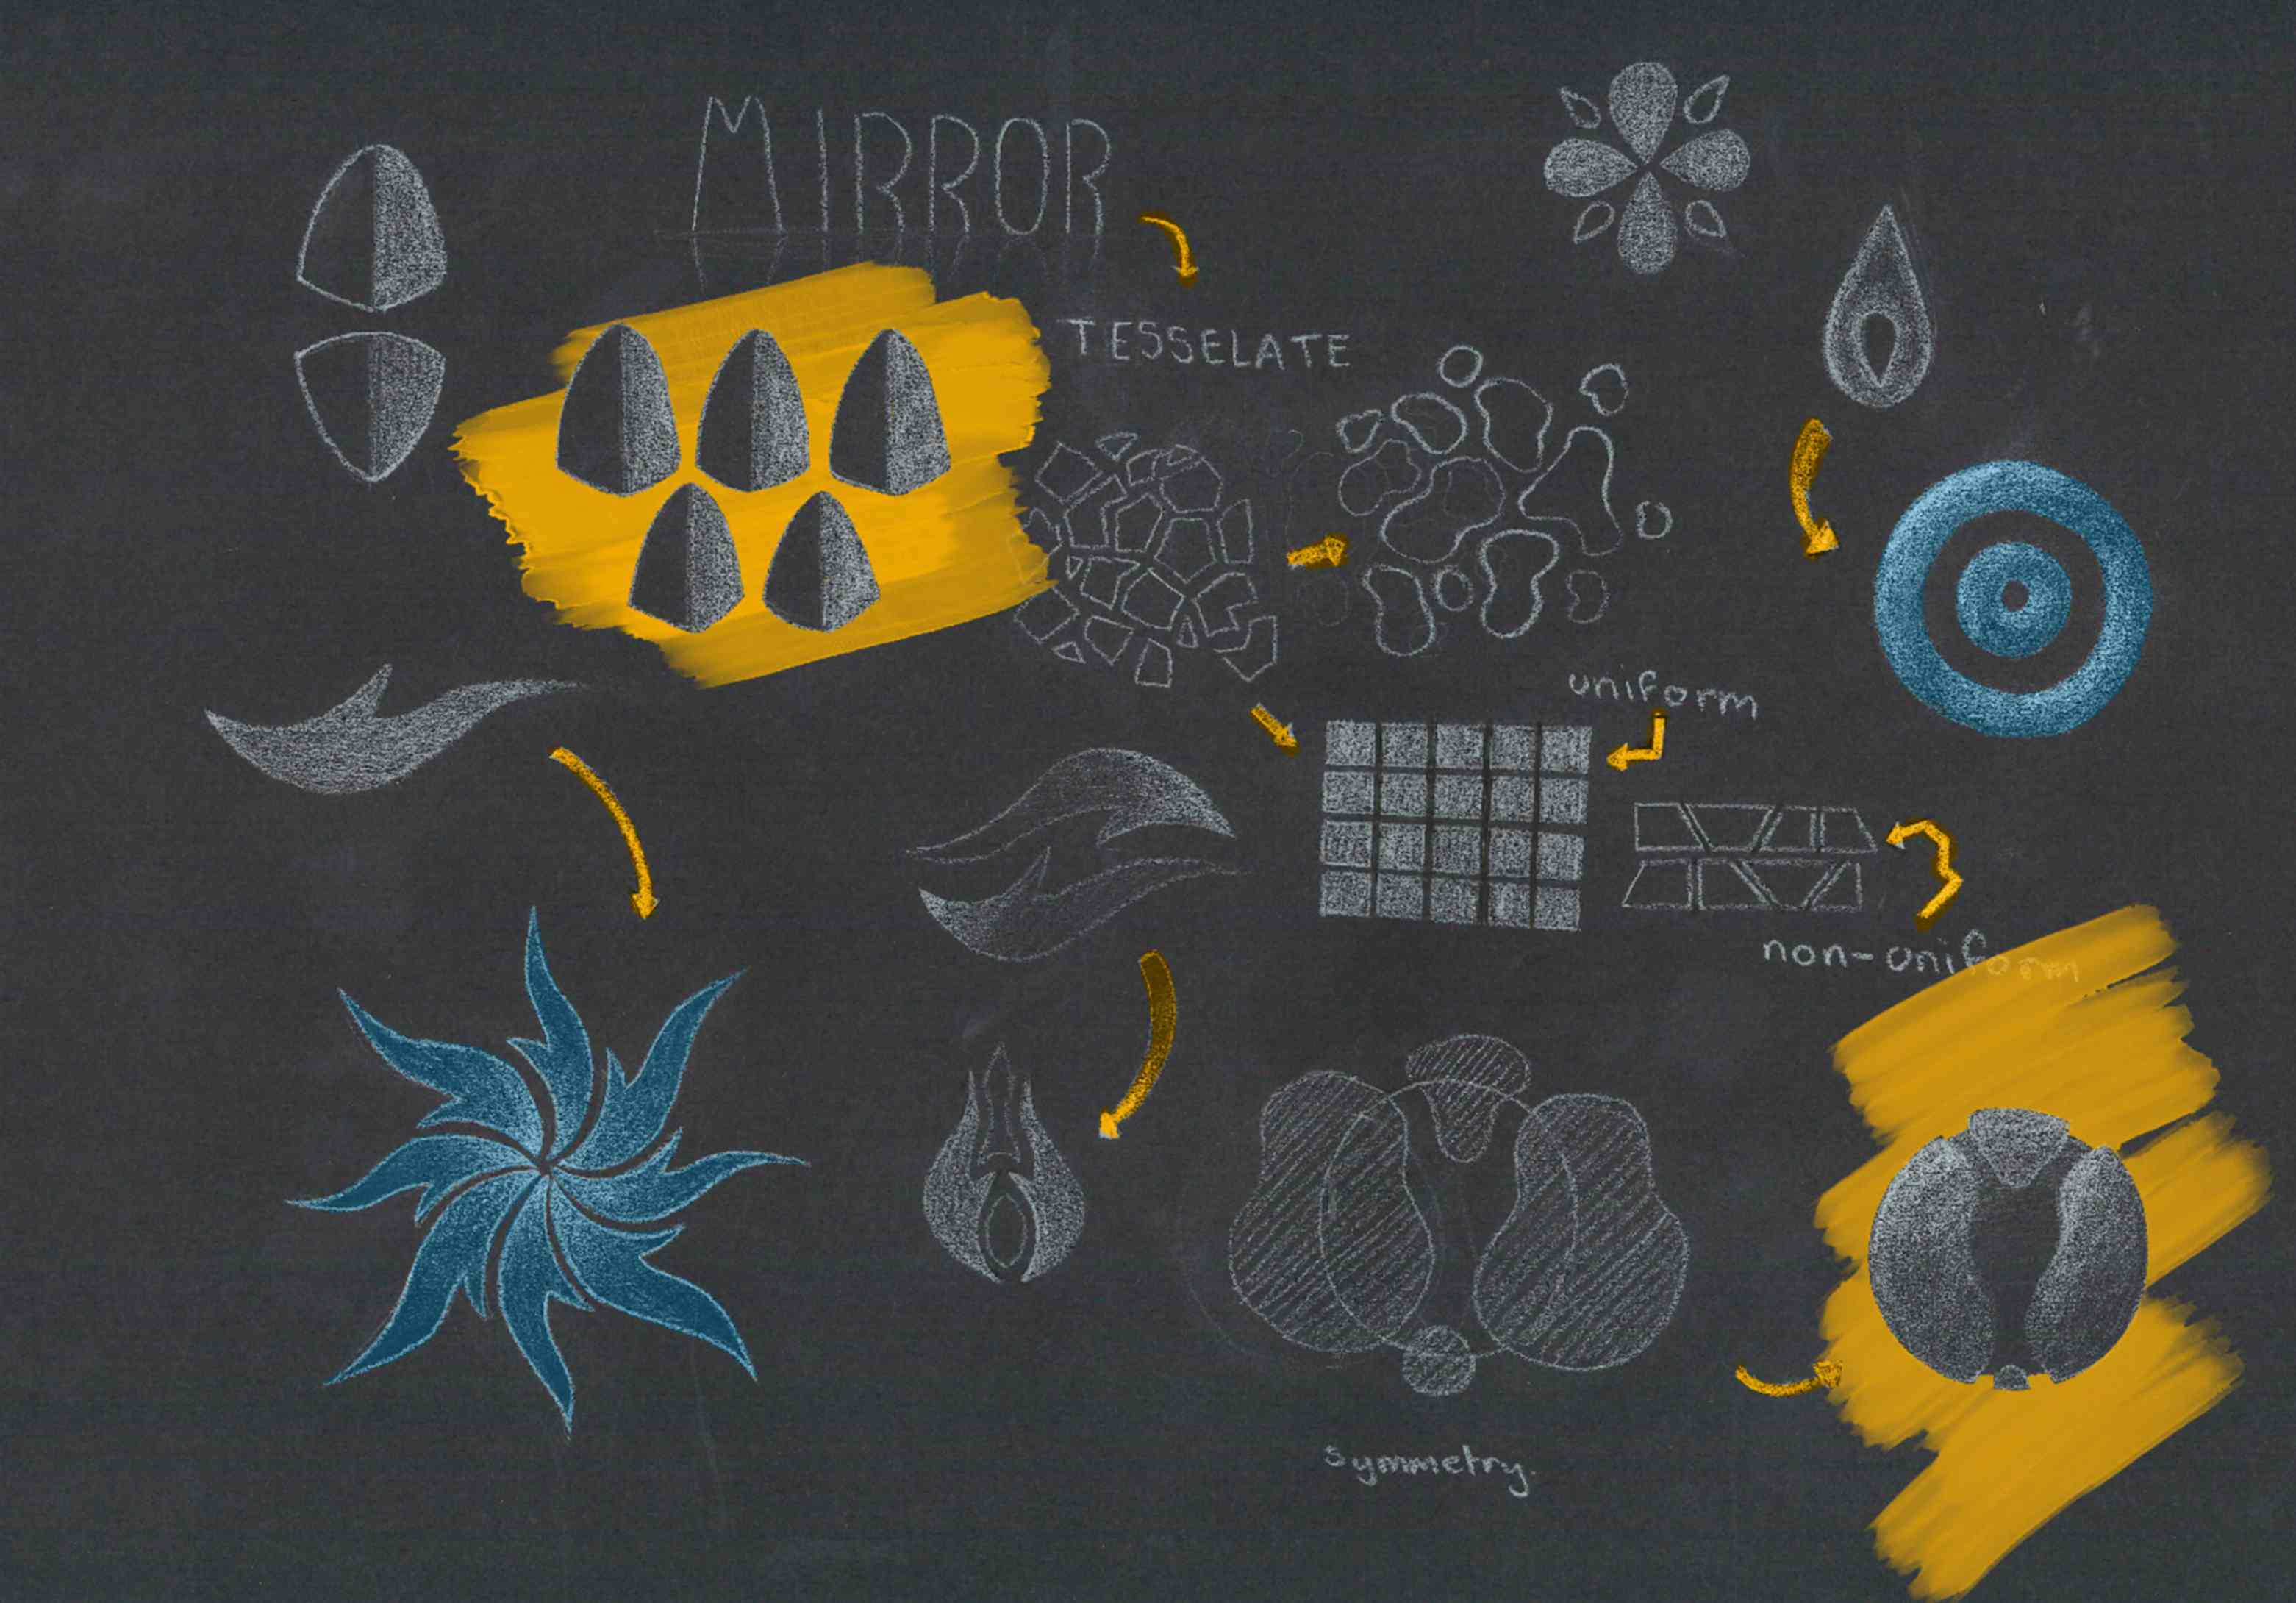 MIRROR
TESSELATE
uniform
non-uniform
symmetry.